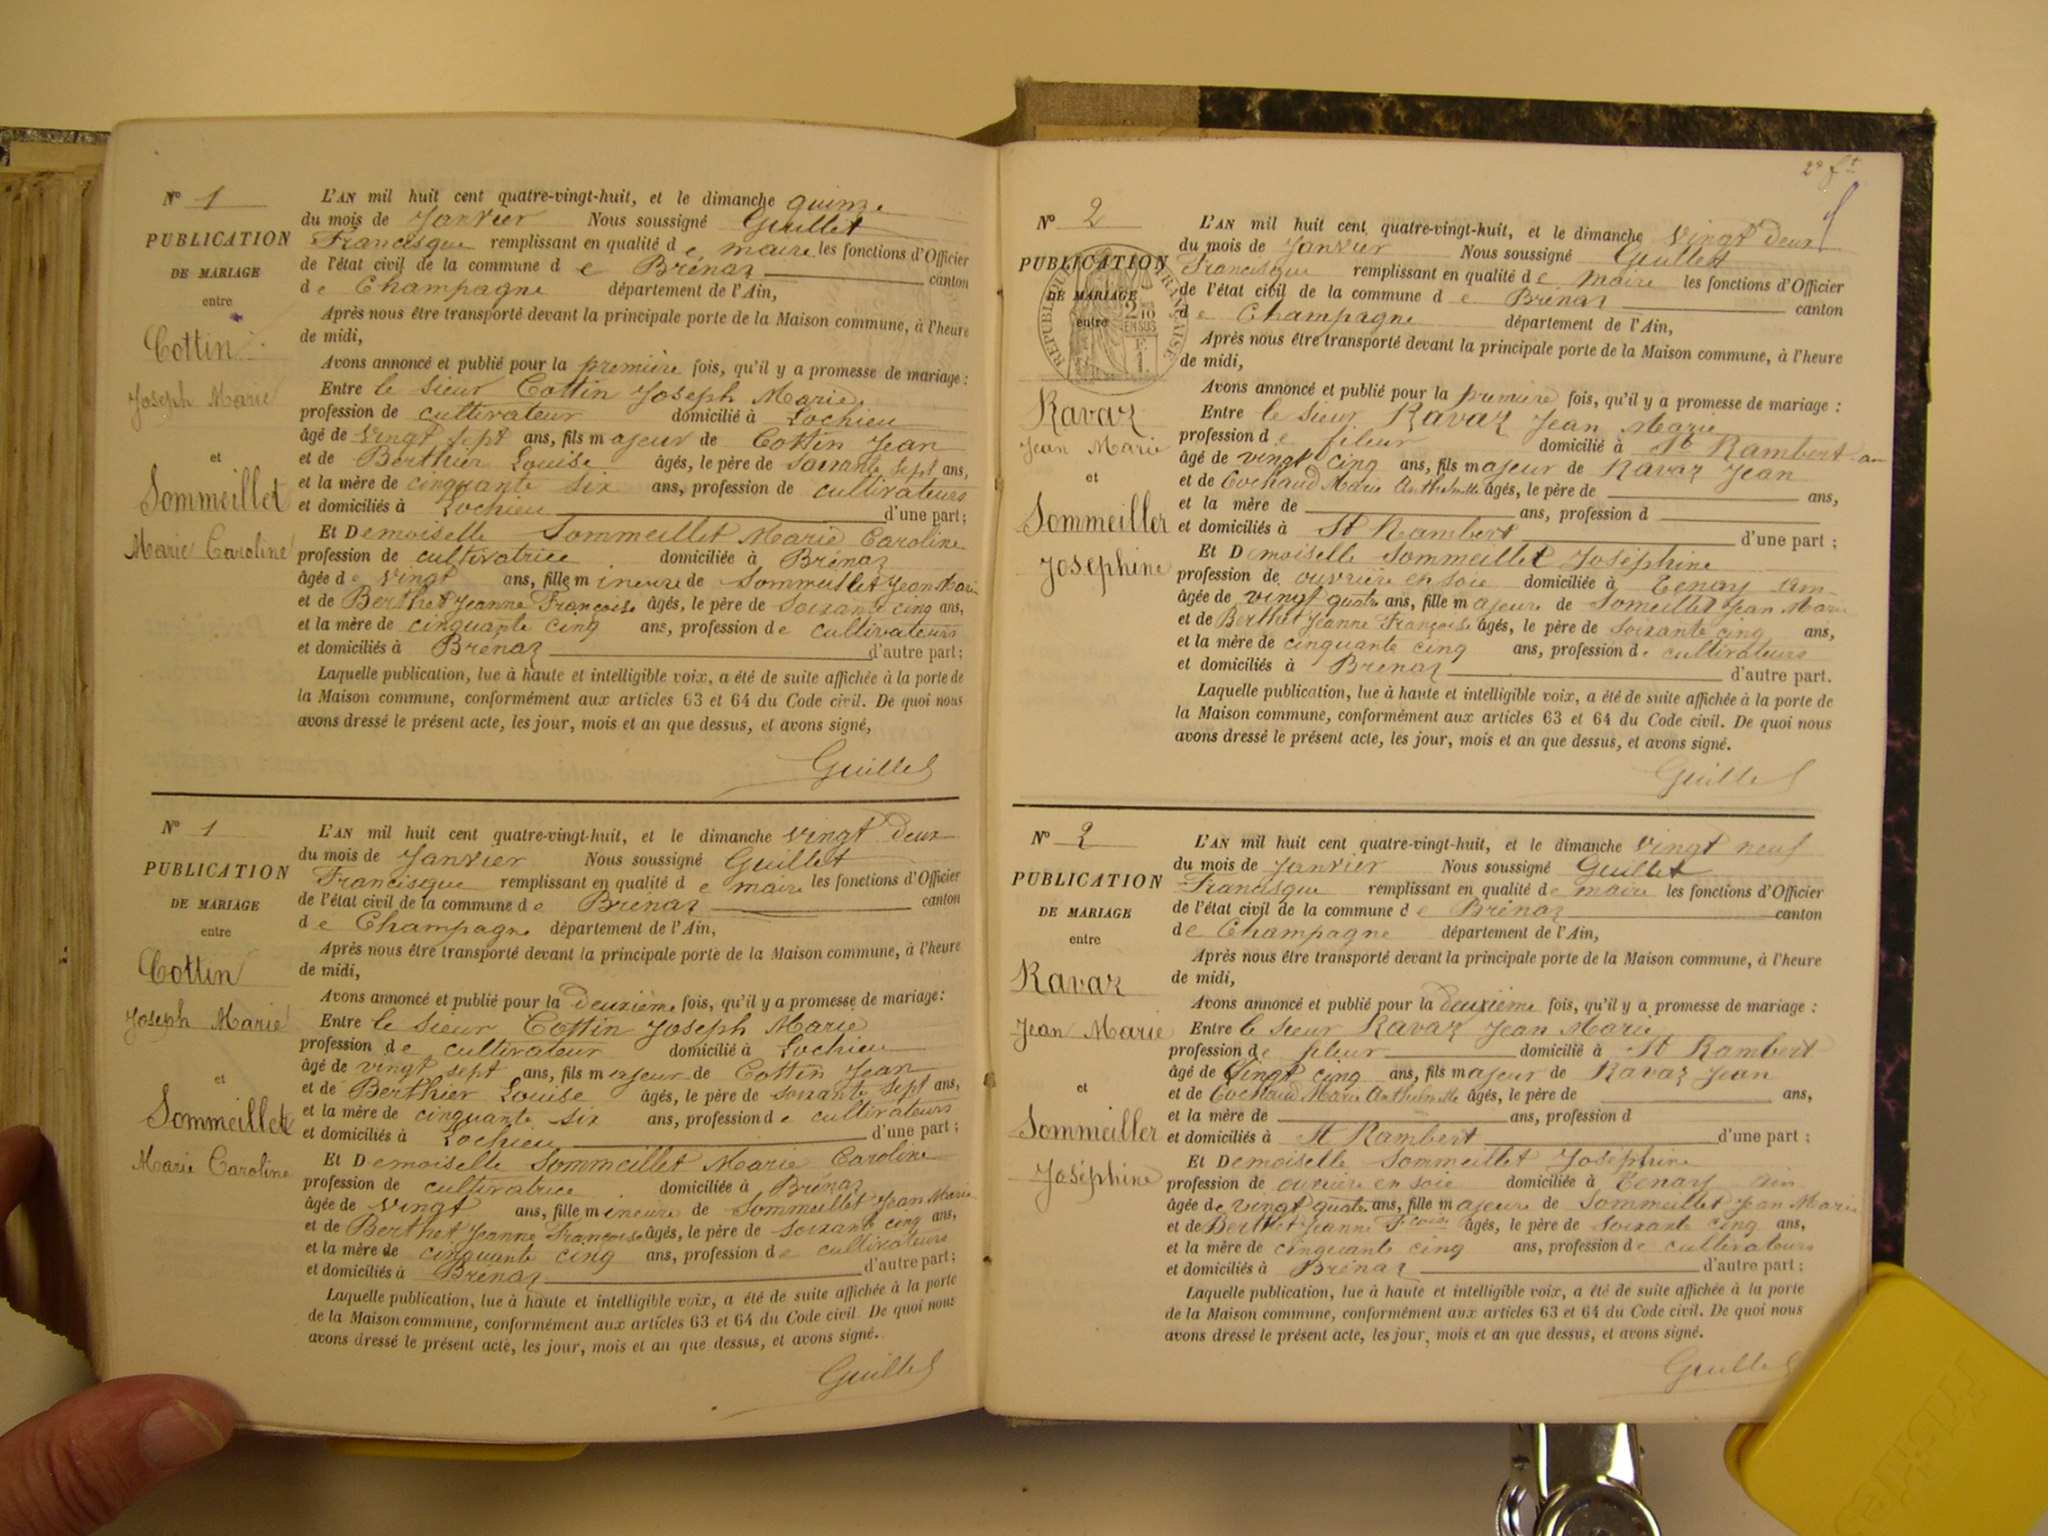 N° 1
PUBLICATION
DE MARIAGE
entre
Cottin
Joseph Marie
et
Sommeillet
Marie Caroline
L'AN mil huit cent quatre-vingt-huit, et le dimanche quinze
du mois de Janvier Nous soussigné Guillet
Francisque remplissant en qualité de maire les fonctions d'Officier
de l'état civil de la commune de Brénaz canton
de Champagne département de l'Ain,
Après nous être transporté devant la principale porte de la Maison commune, à l'heure
de midi,
Avons annoncé et publié pour la première fois, qu'il y a promesse de mariage :
Entre le sieur Cottin Joseph Marie
profession de cultivateur domicilié à Lochieu
âgé de vingt sept ans, fils majeur de Cottin Jean
et de Berthier Louise âgés, le père de soixante sept ans,
et la mère de cinquante six ans, profession de cultivateurs
et domiciliés à Lochieu d'une part ;
Et Demoiselle Sommeillet Marie Caroline
profession de cultivatrice domiciliée à Brénaz
âgée de vingt ans, fille mineure de Sommeillet Jean Marie
et de Berthet Jeanne Françoise âgés, le père de soixante cinq ans,
et la mère de cinquante cinq ans, profession de cultivateurs
et domiciliés à Brénaz d'autre part ;
Laquelle publication, lue à haute et intelligible voix, a été de suite affichée à la porte de
la Maison commune, conformément aux articles 63 et 64 du Code civil. De quoi nous
avons dressé le présent acte, les jour, mois et an que dessus, et avons signé,
Guillet
N° 1
PUBLICATION
DE MARIAGE
entre
Cottin
Joseph Marie
et
Sommeillet
Marie Caroline
L'AN mil huit cent quatre-vingt-huit, et le dimanche vingt deux
du mois de Janvier Nous soussigné Guillet
Francisque remplissant en qualité de maire les fonctions d'Officier
de l'état civil de la commune de Brénaz canton
de Champagne département de l'Ain,
Après nous être transporté devant la principale porte de la Maison commune, à l'heure
de midi,
Avons annoncé et publié pour la deuxième fois, qu'il y a promesse de mariage :
Entre le sieur Cottin Joseph Marie
profession de cultivateur domicilié à Lochieu
âgé de vingt sept ans, fils majeur de Cottin Jean
et de Berthier Louise âgés, le père de soixante sept ans,
et la mère de cinquante six ans, profession de cultivateurs
et domiciliés à Lochieu d'une part ;
Et Demoiselle Sommeillet Marie Caroline
profession de cultivatrice domiciliée à Brénaz
âgée de vingt ans, fille mineure de Sommeillet Jean Marie
et de Berthet Jeanne Françoise âgés, le père de soixante cinq ans,
et la mère de cinquante cinq ans, profession de cultivateurs
et domiciliés à Brénaz d'autre part ;
Laquelle publication, lue à haute et intelligible voix, a été de suite affichée à la porte
de la Maison commune, conformément aux articles 63 et 64 du Code civil. De quoi nous
avons dressé le présent acte, les jour, mois et an que dessus, et avons signé.
Guillet
2e ft
N° 2
PUBLICATION
DE MARIAGE
entre
RÉPUBLIQUE FRANÇAISE
Ravaz
Jean Marie
et
Sommeiller
Josephine
L'AN mil huit cent quatre-vingt-huit, et le dimanche vingt deux
du mois de Janvier Nous soussigné Guillet
Francisque remplissant en qualité de maire les fonctions d'Officier
de l'état civil de la commune de Brénaz canton
de Champagne département de l'Ain,
Après nous être transporté devant la principale porte de la Maison commune, à l'heure
de midi,
Avons annoncé et publié pour la première fois, qu'il y a promesse de mariage :
Entre le sieur Ravaz Jean Marie
profession de fileur domicilié à St Rambert
âgé de vingt cinq ans, fils majeur de Ravaz Jean
et de Cochaud Marie Anthelmette âgés, le père de ans,
et la mère de ans, profession d
et domiciliés à St Rambert d'une part ;
Et Demoiselle Sommeillet Joséphine
profession de ouvrière en soie domiciliée à Tenay ain
âgée de vingt quatre ans, fille majeure de Someillet Jean Marie
et de Berthet Jeanne Françoise âgés, le père de soixante cinq ans,
et la mère de cinquante cinq ans, profession de cultivateurs
et domiciliés à Brénaz d'autre part.
Laquelle publication, lue à haute et intelligible voix, a été de suite affichée à la porte de
la Maison commune, conformément aux articles 63 et 64 du Code civil. De quoi nous
avons dressé le présent acte, les jour, mois et an que dessus, et avons signé.
Guillet
N° 2
PUBLICATION
DE MARIAGE
entre
Ravaz
Jean Marie
et
Sommeiller
Joséphine
L'AN mil huit cent quatre-vingt-huit, et le dimanche vingt neuf
du mois de Janvier Nous soussigné Guillet
Francisque remplissant en qualité de maire les fonctions d'Officier
de l'état civil de la commune de Brénaz canton
de Champagne département de l'Ain,
Après nous être transporté devant la principale porte de la Maison commune, à l'heure
de midi,
Avons annoncé et publié pour la deuxième fois, qu'il y a promesse de mariage :
Entre le sieur Ravaz Jean Marie
profession de fileur domicilié à St Rambert
âgé de vingt cinq ans, fils majeur de Ravaz Jean
et de Cochaud Marie Anthelmette âgés, le père de ans,
et la mère de ans, profession d
et domiciliés à St Rambert d'une part ;
Et Demoiselle Sommeillet Joséphine
profession de ouvrière en soie domiciliée à Tenay ain
âgée de vingt quatre ans, fille majeure de Sommeillet Jean Marie
et de Berthet Jeanne Fçoise âgés, le père de soixante cinq ans,
et la mère de cinquante cinq ans, profession de cultivateurs
et domiciliés à Brénaz d'autre part ;
Laquelle publication, lue à haute et intelligible voix, a été de suite affichée à la porte
de la Maison commune, conformément aux articles 63 et 64 du Code civil. De quoi nous
avons dressé le présent acte, les jour, mois et an que dessus, et avons signé.
Guillet